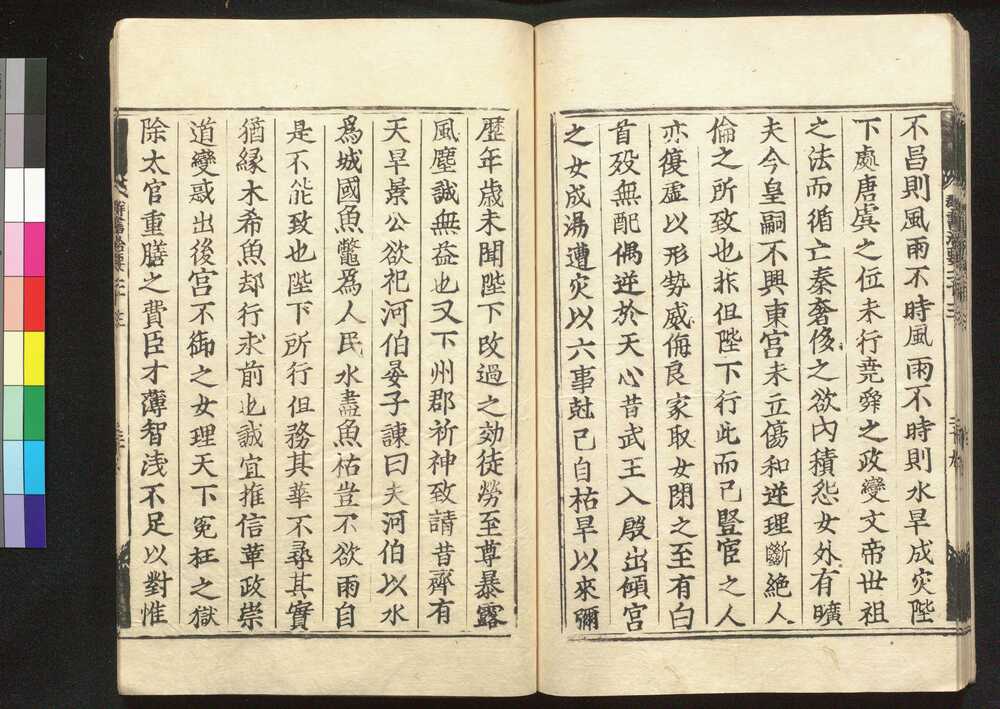 不昌則風雨不時風雨不時則水旱成灾陛
下處唐虞之位未行堯舜之政變文帝世祖
之法而循亡秦奢侈之欲內積怨女外有曠
夫今皇嗣不興東宮未立傷和逆理斷絕人
倫之所致也非但陛下行此而已豎宦之人
亦復虛以形勢威侮良家取女閉之至有白
首歿無配偶逆於天心昔武王入殷出傾宮
之女成湯遭灾以六事尅己自枯旱以來彌
歷年歲未聞陛下改過之効徒勞至尊暴露
風塵誠無益也又下州郡祈神致請昔齊有
天旱景公欲祀河伯晏子諫曰夫河伯以水
為城國魚鼈為人民水盡魚枯豈不欲雨自
是不能致也陛下所行但務其華不尋其實
猶緣木希魚却行求前也誠宜推信革政崇
道變惑出後宮不御之女理天下冤枉之獄
除太官重膳之費臣才薄智淺不足以對惟